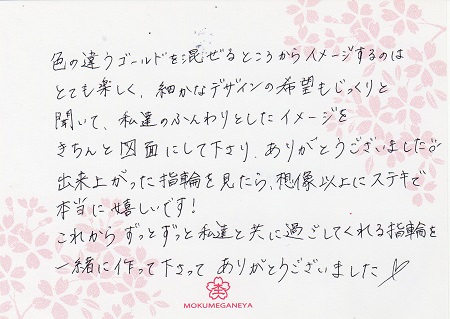 色の違うゴールドを混ぜるところからイメージするのは
とても楽しく、細かなデザインの希望もじっくりと
聞いて、私達のふんわりとしたイメージを
きちんと図面にして下さり、ありがとうございました。
出来上がった指輪を見たら、想像以上にステキで
本当に嬉しいです!
これからずっとずっと私達と共に過ごしてくれる指輪を
一緒に作って下さって ありがとうございました
MOKUMEGANEYA